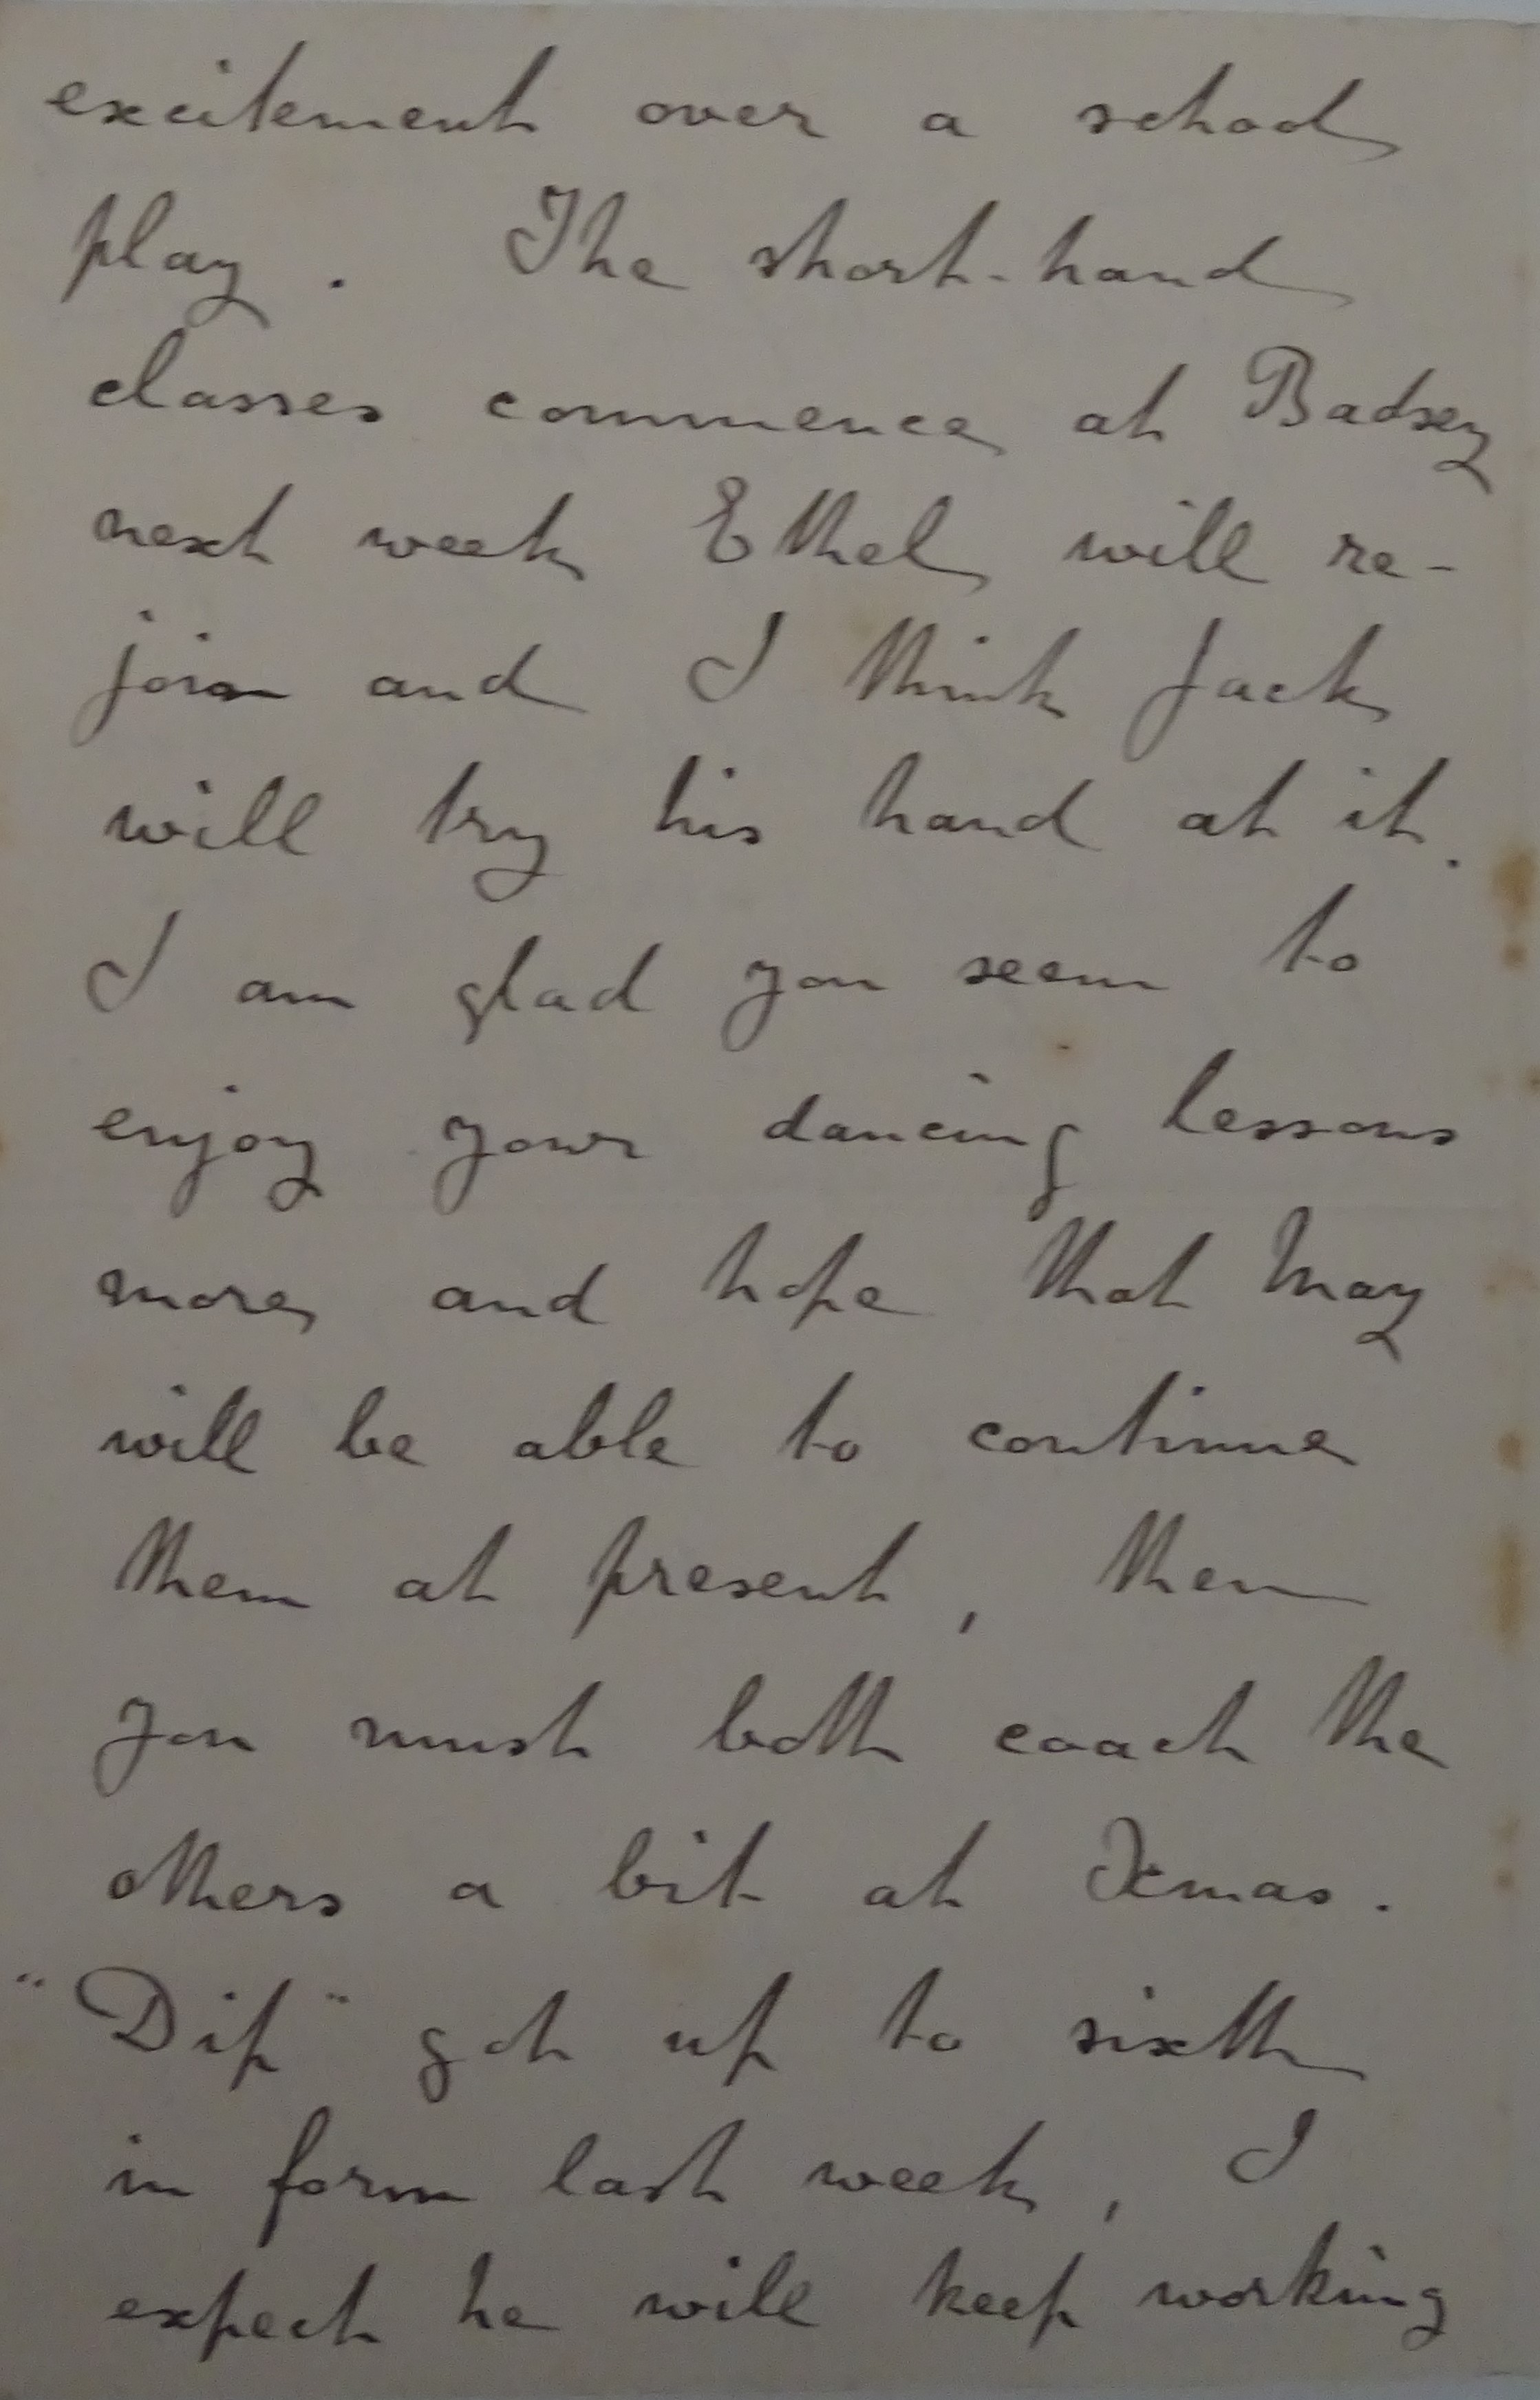 excitement over a school
play. The short-hand
classes commence at Badsey
next week Ethel will re-
join and I think Jack
will try his hand at it.
I am glad you seem to
enjoy your dancing lessons
more and hope that May
will be able to continue
them at present, then
you must both coach the
others a bit at Xmas.
"Dip" got up to sixth
in form last week, I
expect he will keep working